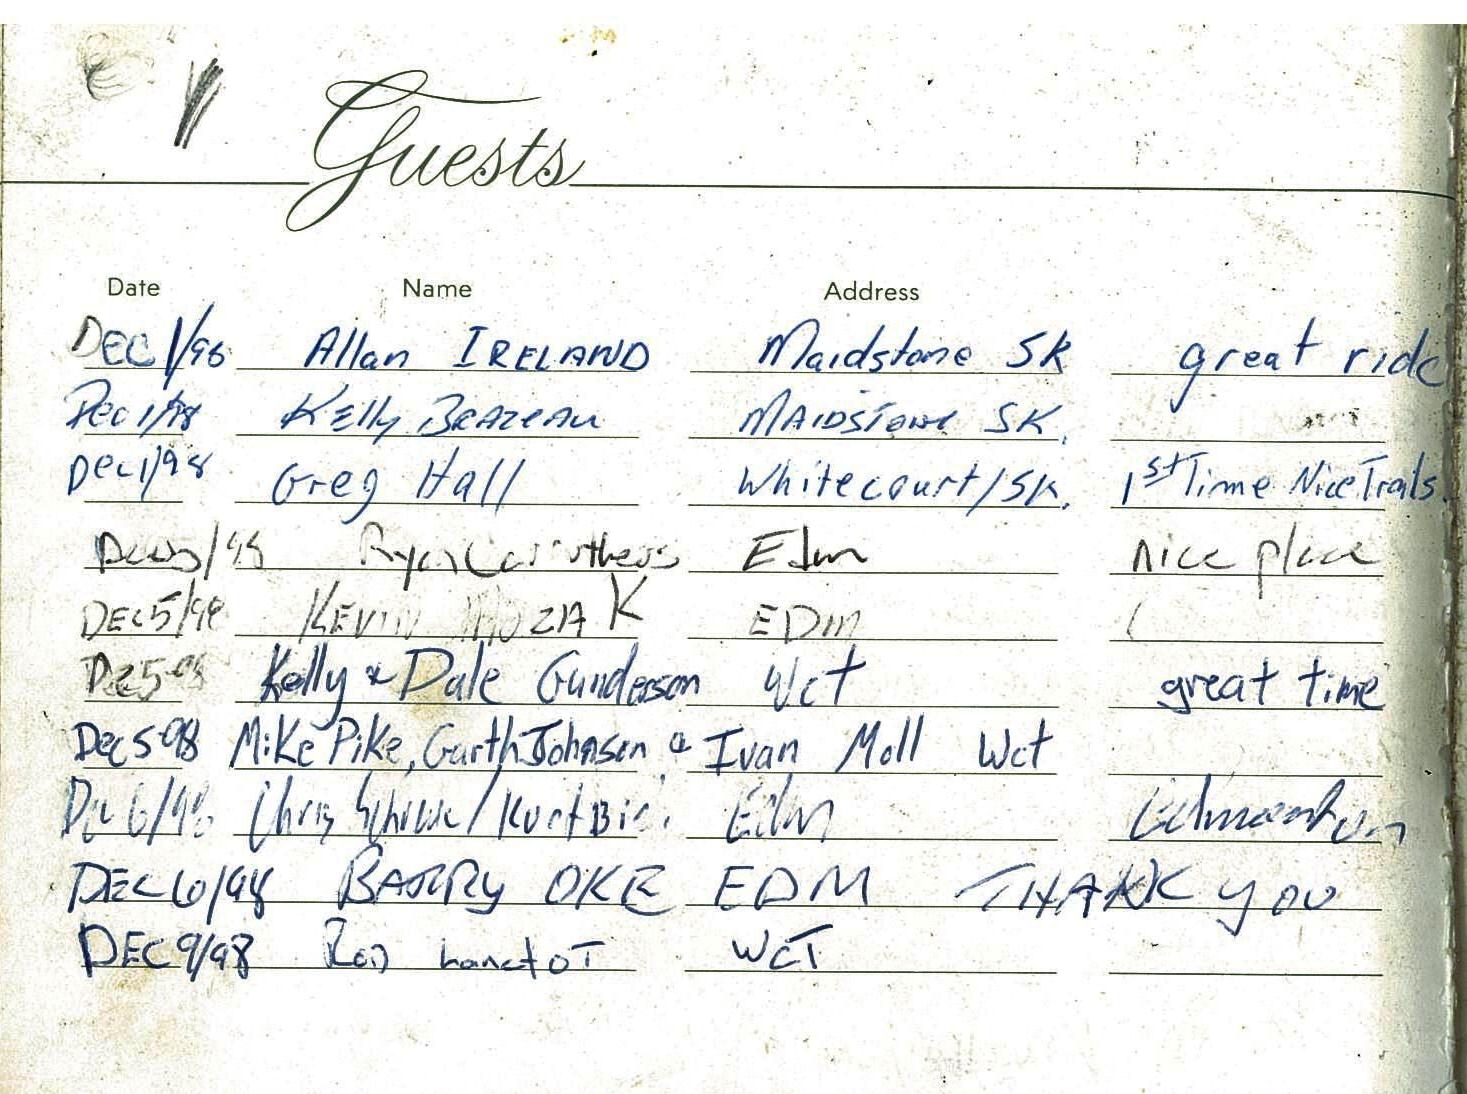 Guests
Date Name Address
DEC 1/98 Allan IRELAND Maidstone SK great ride
Dec 1/98 Kelly BRAZEAU MAIDSTONE SK.
Dec 1/98 Greg Hall Whitecourt/SK. 1st Time Nice Trails.
/98 Ryan Carruthers Edm Nice place
DEC 5/98 KEVIN EDM
Dec 5-98 Kelly & Dale Gunderson Wct great time
Dec 5-98 Mike Pike, Garth Johnson & Ivan Moll Wct
Dec 6/98 Chris / Kurt Edm Edmonton
DEC 6/98 BARRY OKE EDM THANK YOU
DEC 9/98 Ron Lanctot WCT